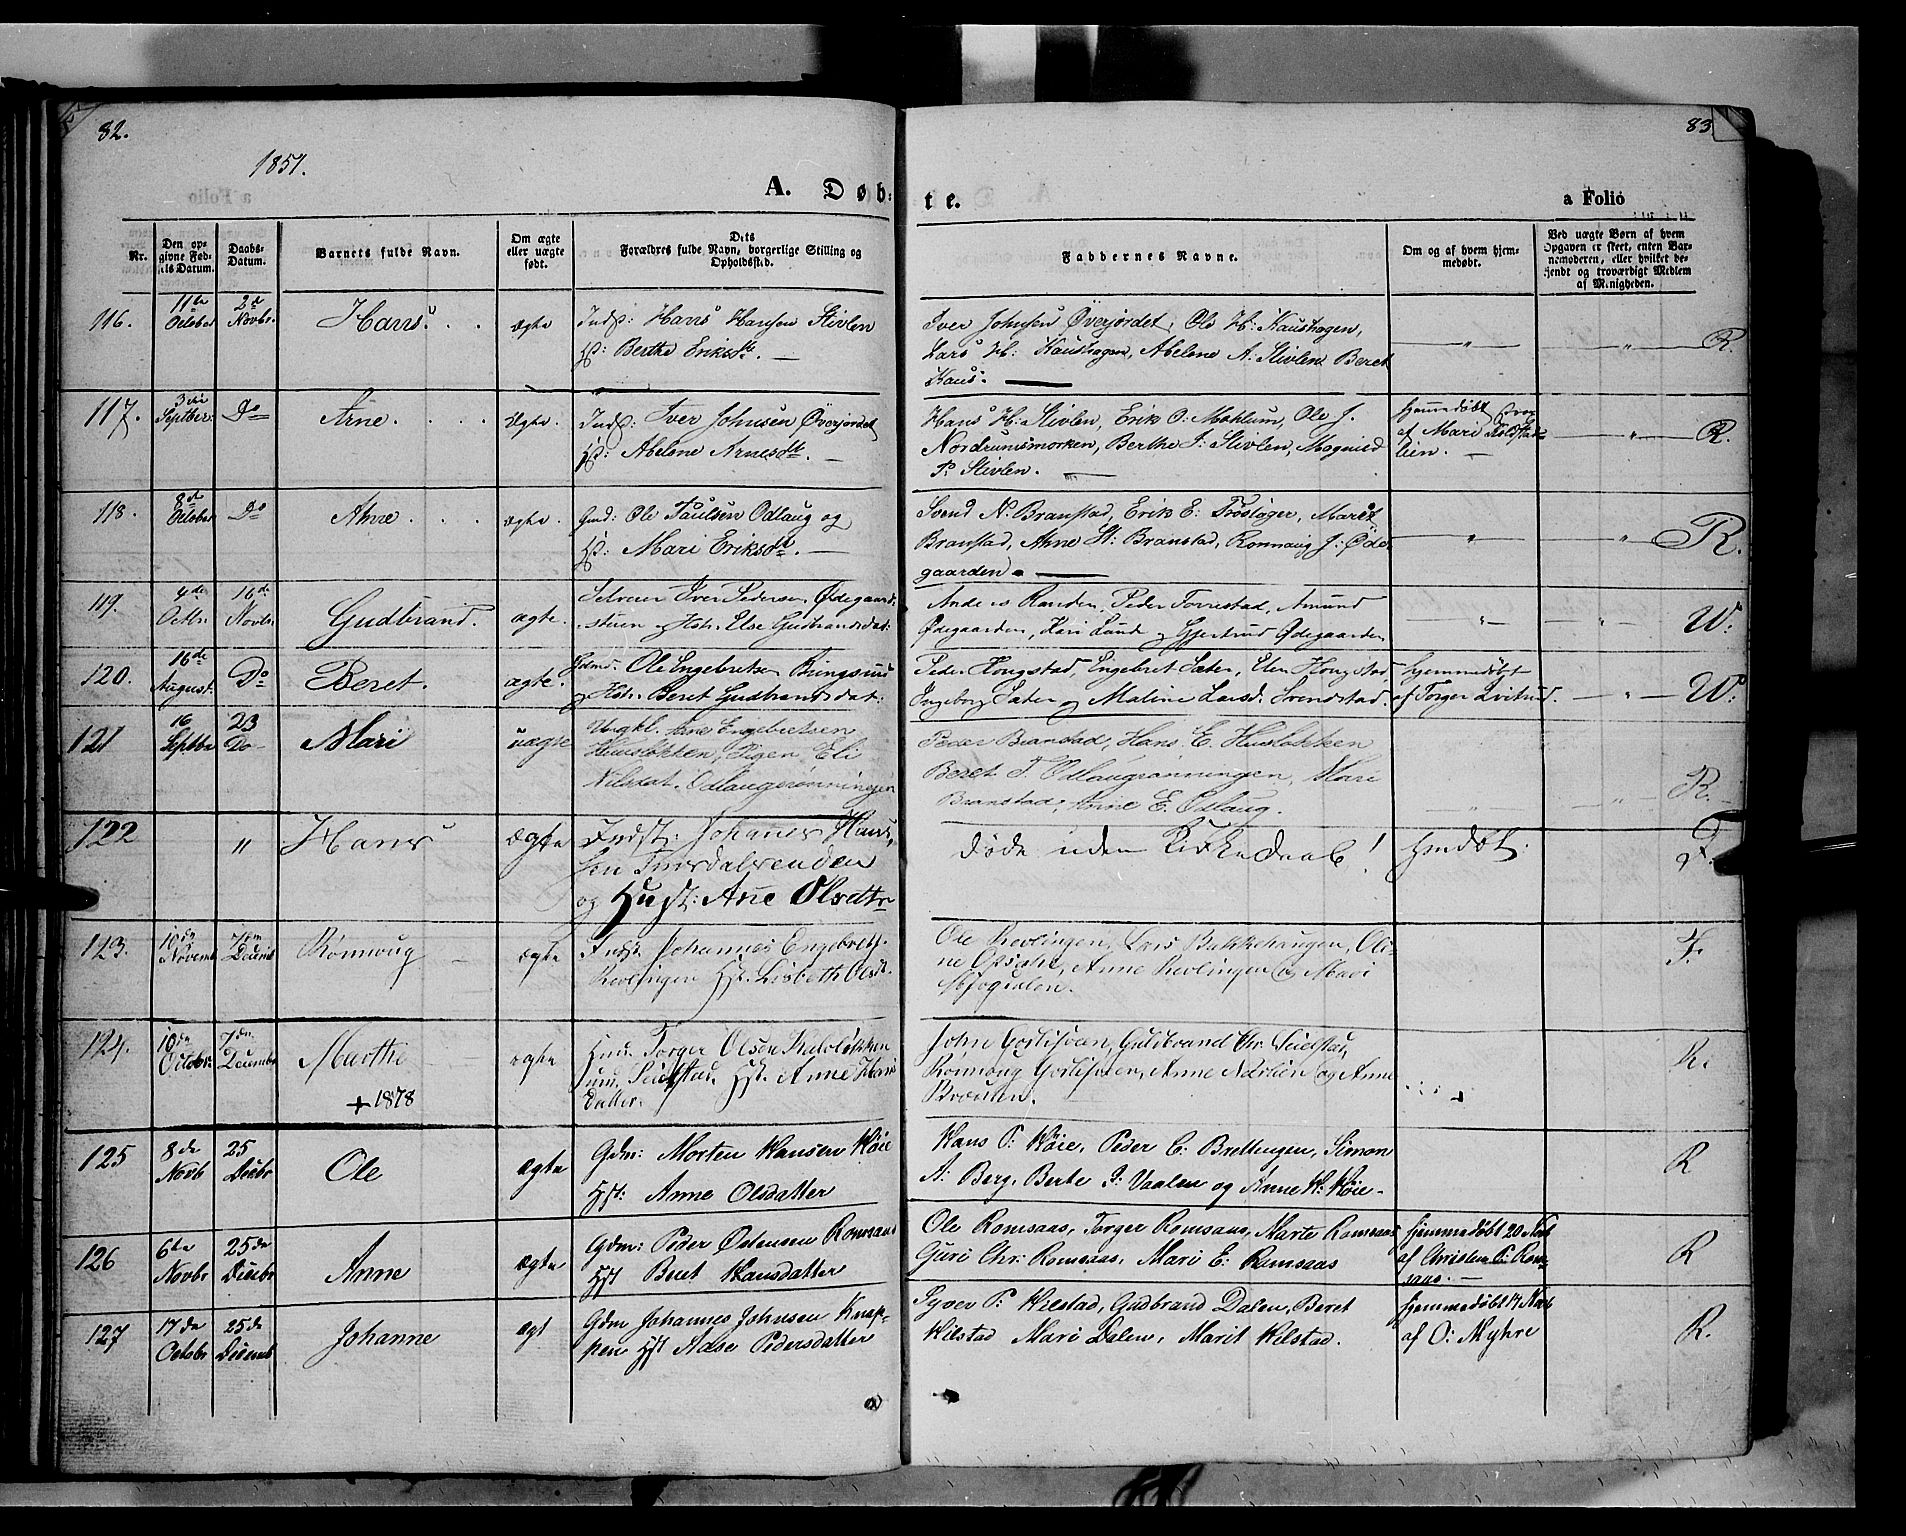 82.
83
1851.
A. Døb-
te.
a Folio
Nr.
Den op-
givne Fød-
sels Datum.
Daabs-
Datum.
Barnets fulde Navn.
Om ægte
eller uægte
født.
Dets
Forældres fulde Navn, borgerlige Stilling og
Opholdssted.
Faddernes Navne.
Om og af hvem hjem-
medøbt.
Ved uægte Børn af hvem
Opgaven er skeet, enten Bar-
nemoderen, eller hvilket be-
kjendt og troværdigt Medlem
af Menigheden.
116.
11te
October
2d
Novbr.
Hans
ægte
Indst: Hans Hansen Stivlen
Hst: Berthe Eriksdtr.
Iver Johnsen Øverjordet, Ole H: Kaushagen,
Lars H: Kaushagen, Abelone A: Stivlen Beret
Kaus.
R.
117.
3die
Septber:
Do
Arne
ægte.
Indst: Iver Johnsen Øverjordet
Hst: Abelone Arnesdtr.
Hans H: Stivlen, Erik O: Mohlum, Ole J.
Nordrumsmorken, Berthe J: Stivlen, Magnild
P: Stivlen.
hjemmedøbt
af Mari
lien.
R.
118.
8de
October
Do
Anne
ægte.
Gmd: Ole Paulsen Odlaug og
Hst: Mari Eriksdtr.
Svend N: Branstad, Erik E: Trøstager, Marit
Branstad, Anne St: Branstad, Ronnaug J: Øde-
gaarden.
R.
119.
4de
Octbr.
16de
Novbr.
Gudbrand.
ægte.
Selveier Iver Pedersen Ødegaard-
stuen og Hstr. Else Gudbrandsdat:
Anders Randen, Peder Torrestad, Amund
Ødegaarden, Kari Lunde og Gjertrud Ødegaarden.
W:
120.
16de
August.
Do
Beret.
ægte.
Gdmd. Ole Engebretsen Ringsrud
Hstr. Beret Gudbrandsdat:
Peder Hongstad, Engebret Sater, Elen Hongstad,
Ingeborg Sater og Maline Larsd. Svendstad.
hjemmedøbt
af Torger Qvitrud.
W:
121
16
Septbr
23
Do
Mari
uægte
Ungkl. Arne Engebretsen
Huusløkken, Pigen Eli
Nilsdat. Odlaugrønningen
Peder Branstad, Hans E. Husløkken
Beret T. Odlaugrønningen, Mari
Branstad, Anne E. Odlaug.
R.
122
"
Hans
ægte
Indst: Johanes Hans-
sen Tørdalsenden
og Hust: Ane Olsdttr
døde uden Kirkedaab!
Hmdøbt.
123.
10de
Novemb
7de
Decemb
Rønnoug
ægte
Indst. Johannes Engebrets.
Revlingen Hst. Lisbeth Olsd.
Ole Revlingen, Lars Bakkehaugen, Oli-
ne Opsahl, Anne Revlingen og Mari
F.
124.
10de
October
7de
December
Marthe
+ 1878
ægte
Huus. Torger Olsen Kaloløkken
und. Seielstad. Hst. Anne Hans
Datter.
John Gorlihoen, Guldbrand Chr. Seielstad,
Rønnoug Gorlihoen, Anne Nærlien og Anne
R.
125
8de
Novb
25
Decbr
Ole
ægte
Gdm: Morten Hansen Høie
Hst: Anne Olsdatter
Hans P: Høie, Peder C: Brettingen, Simon
A: Berg, Berte J: Vaalen og Anne H: Høie
R
126
6te
Novbr
25de
Decbr
Anne
ægte
Gdm: Peder Østensen Romsaas
Hst Beret Hansdatter
Ole Romsaas, Torger Romsaas, Marte Romsaas
Guri Chr: Romsaas, Mari E: Romsaas
hjemmedøbt 20 Novb
af Christen P: Rom-
saas.
R
127
17de
Octobr
25de
Decemb
Johanne
ægt
Gdm Johannes Johnsen Knap-
pen Hst Aase Pedersdatter
Syver P: Hilstad, Gudbrand Dalen, Beret
Hilstad Mari Dalen, Marit Hilstad.
hjemmedøbt 17 Novb
af O: Myhre
R.